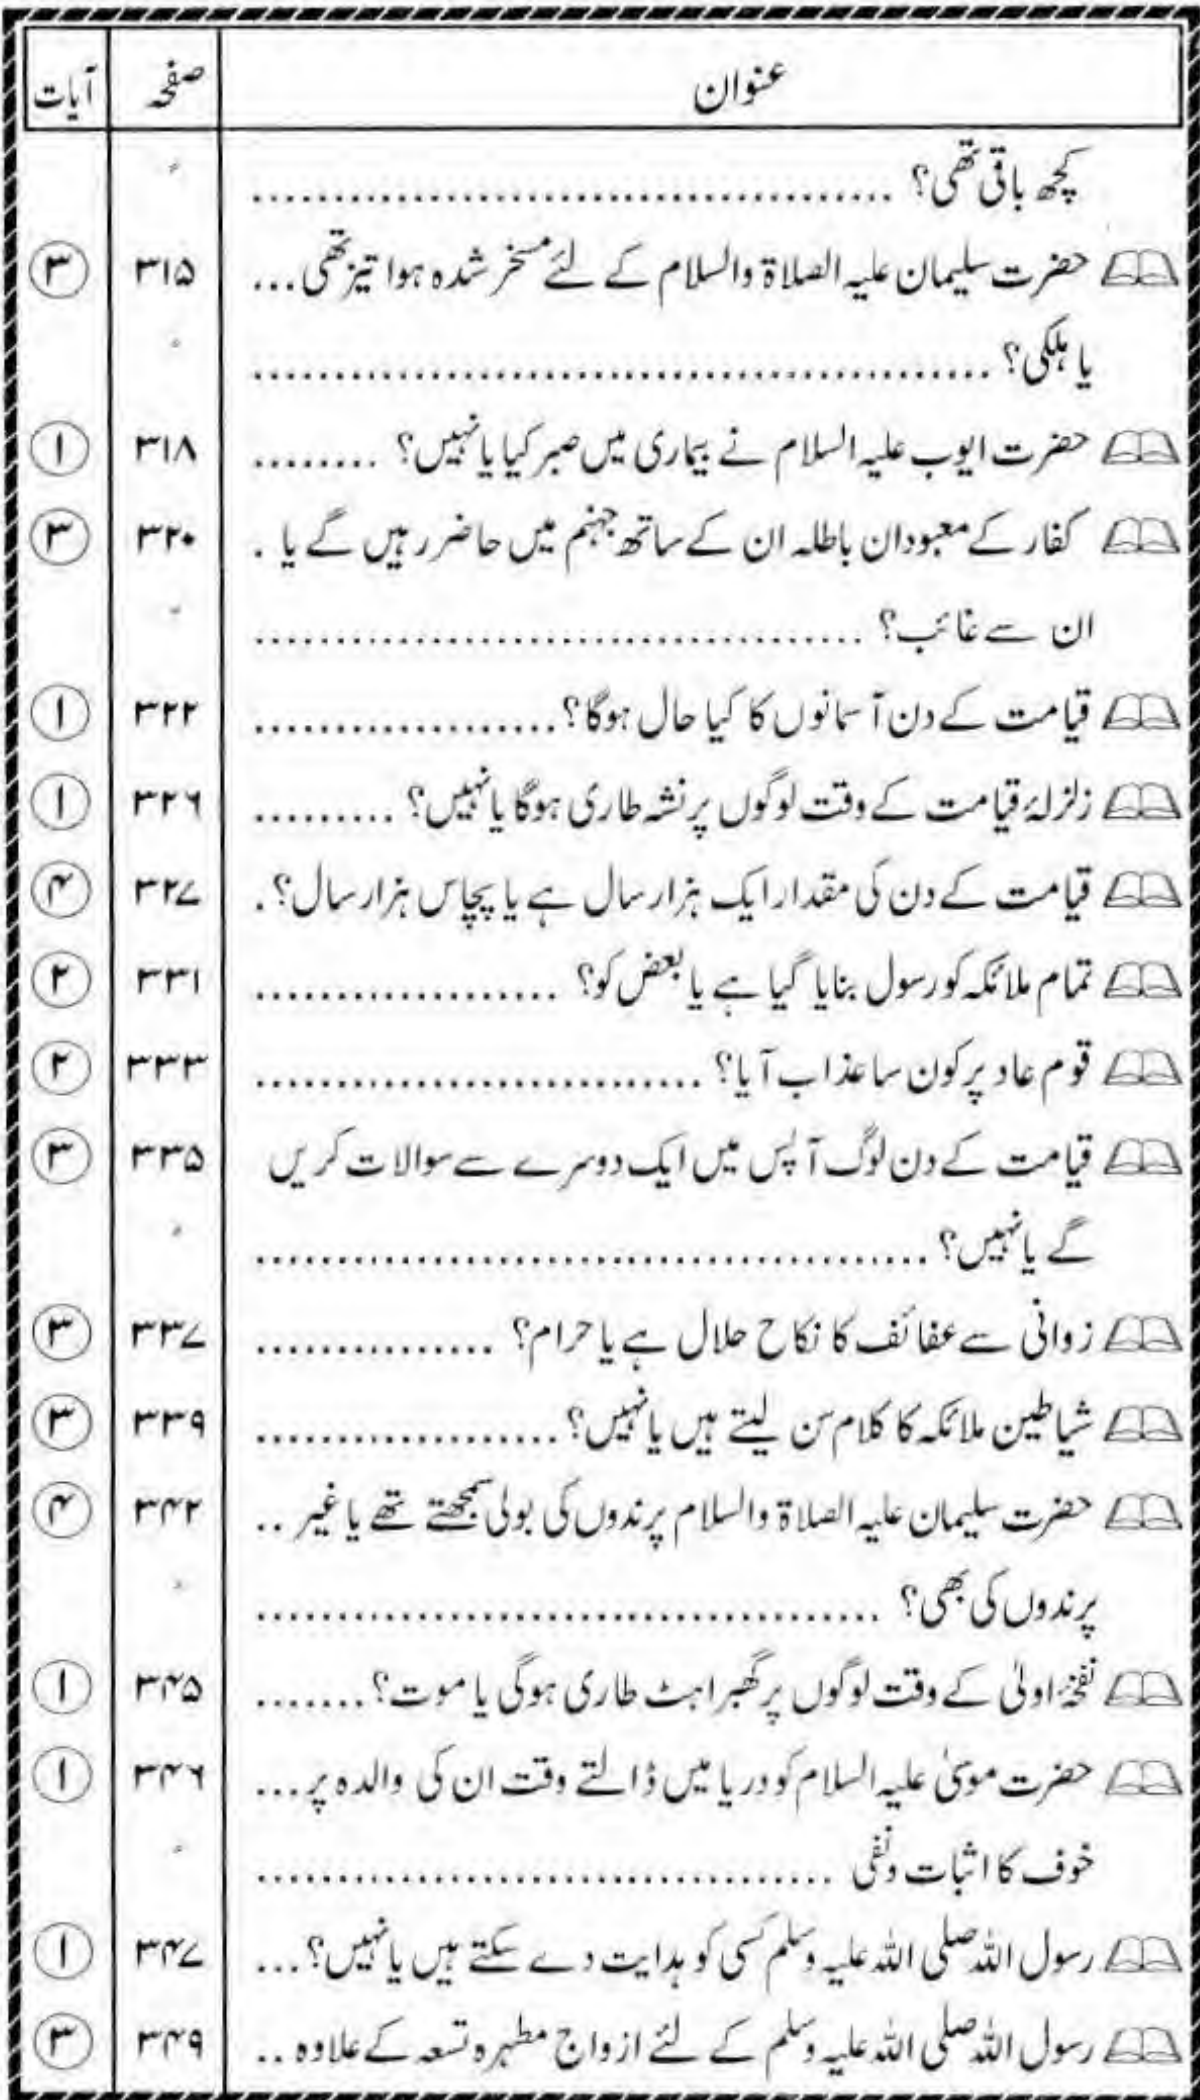 عنوان صفحہ آیات
کچھ باقی تھی؟ ........................................
📖 حضرت سلیمان علیہ الصلاۃ والسلام کے لئے مسخر شدہ ہوا تیز تھی... ۳۱۵ ③
یا ہلکی؟ ..............................................
حضرت ایوب علیہ السلام نے بیماری میں صبر کیا یا نہیں؟ ........ ۳۱۸ ①
کفار کے معبودان باطلہ ان کے ساتھ جہنم میں حاضر رہیں گے یا . ۳۲۰ ③
ان سے غائب؟ ......................................
قیامت کے دن آسمانوں کا کیا حال ہوگا؟ ................... ۳۲۲ ①
زلزلۂ قیامت کے وقت لوگوں پر نشہ طاری ہوگا یا نہیں؟ ......... ۳۲۶ ①
قیامت کے دن کی مقدار ایک ہزار سال ہے یا پچاس ہزار سال؟ . ۳۲۷ ④
تمام ملائکہ کو رسول بنایا گیا ہے یا بعض کو؟ ................... ۳۳۱ ②
قوم عاد پر کون سا عذاب آیا؟ ............................ ۳۳۳ ②
قیامت کے دن لوگ آپس میں ایک دوسرے سے سوالات کریں ۳۳۵ ③
گے یا نہیں؟ ..........................................
زوانی سے عفائف کا نکاح حلال ہے یا حرام؟ ............... ۳۳۷ ③
شیاطین ملائکہ کا کلام سن لیتے ہیں یا نہیں؟ ................... ۳۳۹ ③
حضرت سلیمان علیہ الصلاۃ والسلام پرندوں کی بولی سمجھتے تھے یا غیر .. ۳۴۲ ④
پرندوں کی بھی؟ .......................................
نفخۂ اولیٰ کے وقت لوگوں پر گھبراہٹ طاری ہوگی یا موت؟ ....... ۳۴۵ ①
حضرت موسیٰ علیہ السلام کو دریا میں ڈالتے وقت ان کی والدہ پر ... ۳۴۶ ①
خوف کا اثبات ونفی ....................................
رسول اللہ صلی اللہ علیہ وسلم کسی کو ہدایت دے سکتے ہیں یا نہیں؟ ... ۳۴۷ ①
رسول اللہ صلی اللہ علیہ وسلم کے لئے ازواج مطہرہ تسعہ کے علاوہ .. ۳۴۹ ③